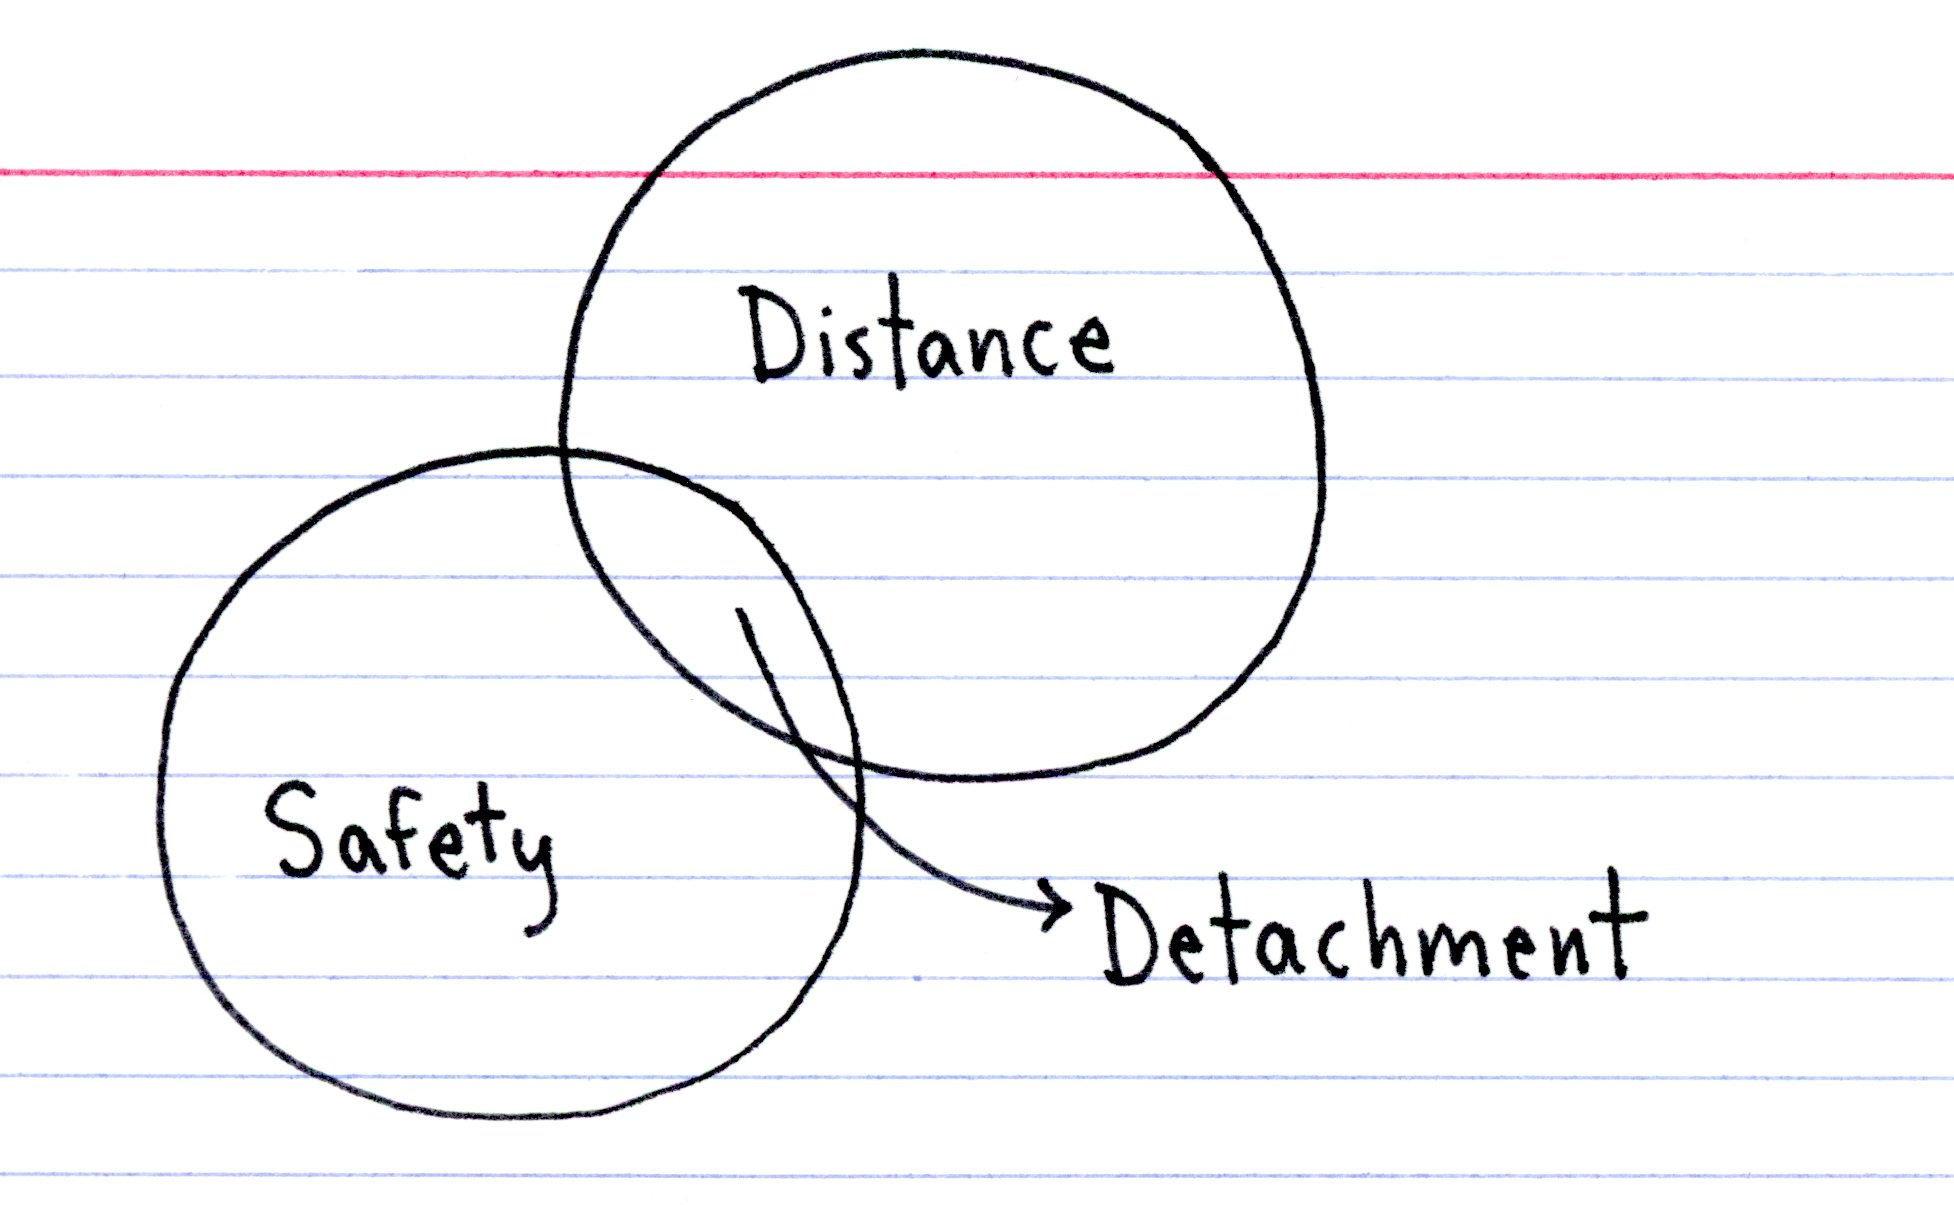 Distance
Safety
Detachment